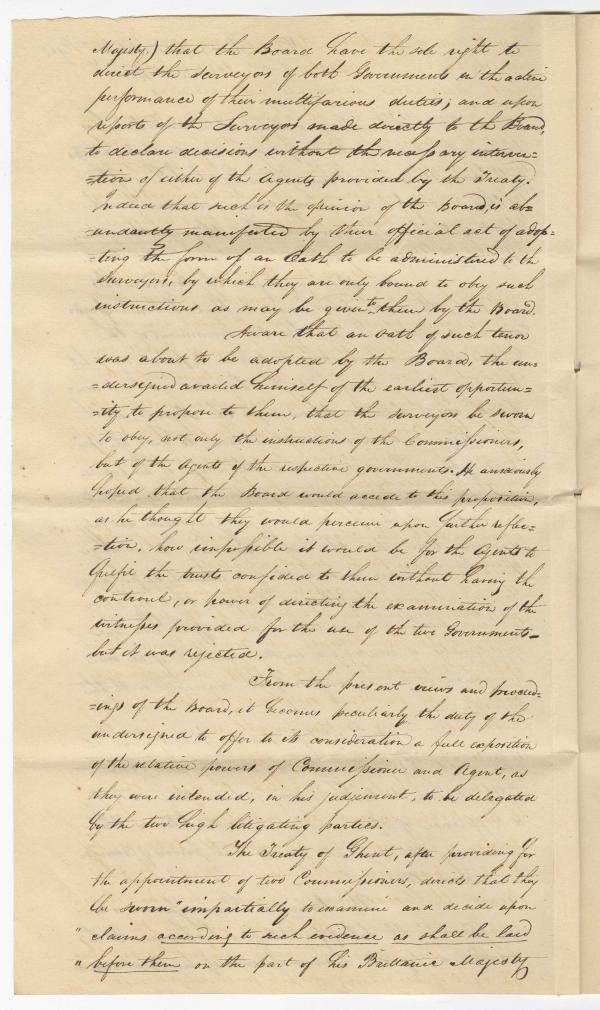 Majesty.) that the Board have the sole right to
direct the surveyors of both Governments in the active
performance of their multifarious duties; and upon
reports of the Surveyors made directly to the Board,
to declare decisions without the necessary interven=
=tion of either of the Agents provided by the Treaty.
Indeed that such is the opinion of the Board, is ab=
undantly manifested by their official act of adop=
=ting the form of an Oath to be administered to the
surveyors, by which they are only bound to obey such
instructions as may be given to them by the Board.
Aware that an oath of such tenor
was about to be adopted by the Board, the un=
=dersigned availed himself of the earliest opportun=
=ity to propose to them, that the surveyors be sworn
to obey, not only the instructions of the Commissioners,
but of the Agents of the respective governments. He anxiously
hoped that the Board would accede to this proposition,
as he thought they would perceive upon further reflec=
=tion, how impossible it would be for the Agents to
fulfil the trusts confided to them without having the
controul, or power of directing the examination of the
witnesses provided for the use of the two Governments_
but it was rejected.
From the present views and proceed=
=ings of the Board, it becomes peculiarly the duty of the
undersigned to offer to its consideration a full exposition
of the relative powers of Commissioner and Agent, as
they were intended, in his judgement, to be delegated
by the two high litigating parties.
The Treaty of Ghent, after providing for
the appointment of two Commissioners, directs that they
be sworn "impartially to examine and decide upon
" claims according to such evidence as shall be laid
" before them on the part of his Brittanic Majesty